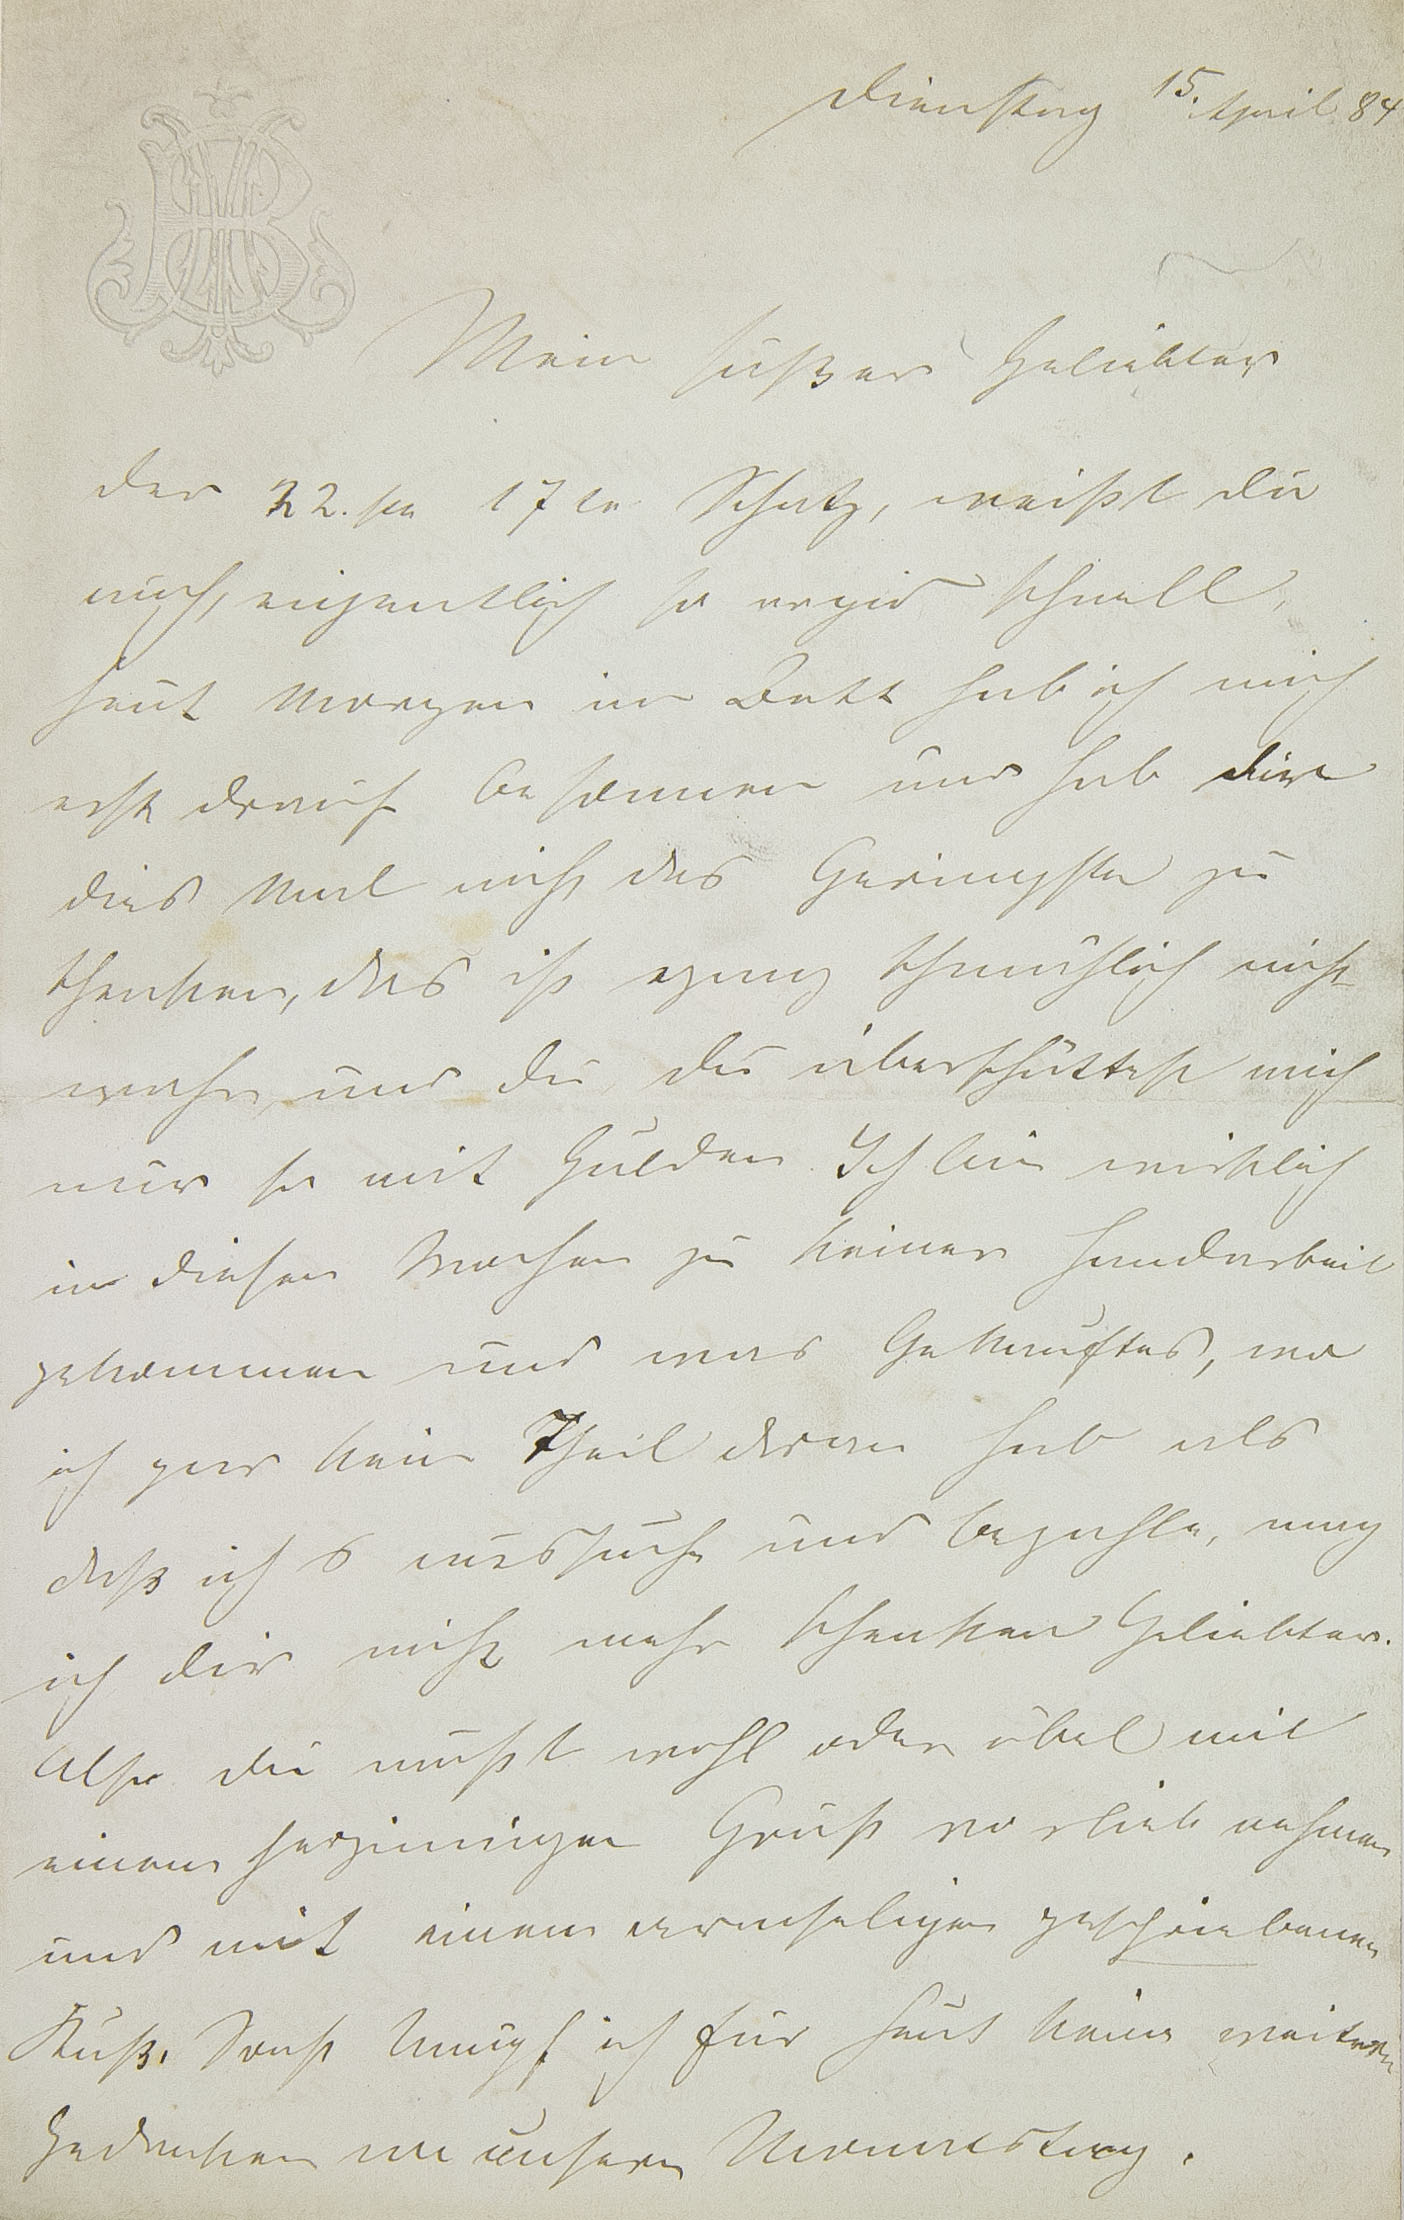 Dienstag 15. April 84
Mein süßer Geliebter
der 22. so 17te Schatz, weißt du
auch, eigentlich so arg schnell,
heut Morgen im Bett hab ich mich
erst drauf besonnen und hab dir
dies Mal nicht das Geringste zu
schenken, das ist ganz schmählich nicht
wahr, und du du überschüttest mich
nur so mit Gulden. Ich bin wirklich
in diesen Wochen zu keiner Handarbeit
gekommen und was Gekauftes, wo
ich gar kein Theil daran hab als
daß ich's aussuche und bezahle, mag
ich dir nicht mehr schenken Geliebter.
Also du mußt wohl oder übel mit
einem herzinnigen Gruß vorlieb nehmen
und mit einem armseligen geschriebenen
Kuß. Sonst knüpf ich für heut keine weitern
Gedanken an unsern Monatstag.